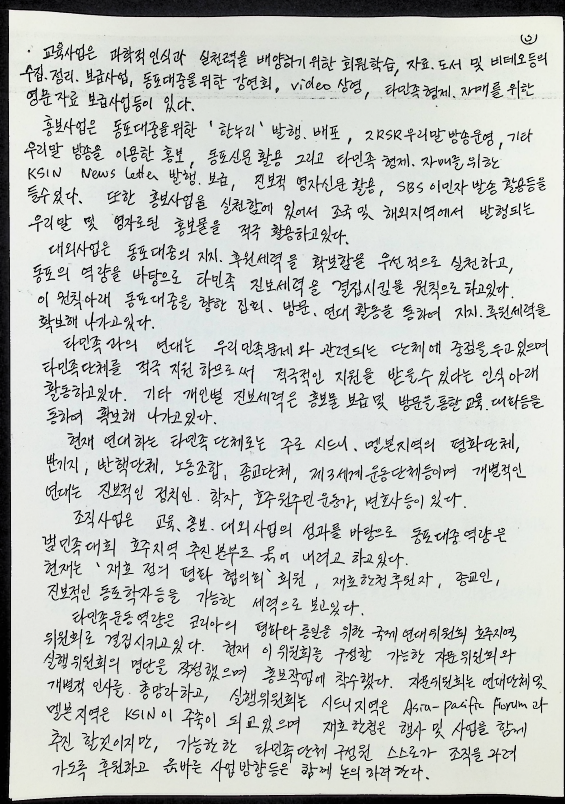 ③
교육사업은 과학적 인식과 실천력을 배양하기 위한 회원학습, 자료. 도서 및 비데오등의
수집. 정리. 보급사업, 동포대중을 위한 강연회, video 상영, 타민족 형제. 자매를 위한
영문자료 보급사업등이 있다.
홍보사업은 동포대중을위한 '한누리' 발행. 배포, 2RSR우리말 방송운영, 기타
우리말 방송을 이용한 홍보, 동포신문 활용 그리고 타민족 형제. 자매를 위한
KSIN News Letter 발행. 보급, 진보적 영자신문 활용, SBS 이민자 방송 활용등을
들수있다. 또한 홍보사업을 실천함에 있어서 조국 및 해외지역에서 발행되는
우리말 및 영자로된 홍보물을 적극 활용하고있다.
대외사업은 동포대중의 지지. 후원세력을 확보함을 우선적으로 실천하고,
동포의 역량을 바탕으로 타민족 진보세력을 결집시킴을 원칙으로하고있다.
이 원칙아래 동포대중을 향한 집회. 방문. 연대 활용을 통하여 지지. 후원세력을
확보해 나가고있다.
타민족과의 연대는 우리민족문제와 관련되는 단체에 중점을 두고있으며
타민족단체를 적극 지원하므로써 적극적인 지원을 받을수 있다는 인식아래
활동하고있다. 기타 개인별 진보세력은 홍보물 보급 및 방문을 통한 교육. 대화등을
통하여 확보해 나가고있다.
현재 연대하는 타민족 단체로는 주로 시드니. 멜본지역의 평화단체,
반기지, 반핵단체, 노동조합, 종교단체, 제3세계 운동단체등이며 개별적인
연대는 진보적인 정치인. 학자, 호주 원주민 운동가, 변호사등이 있다.
조직사업은 교육. 홍보. 대외사업의 성과를 바탕으로 동포대중 역량은
범민족대회 호주지역 추진본부로 묶어 내려고 하고있다.
현재는 '재호 정의 평화 협의회' 회원, 재호한청후원자, 종교인,
진보적인 동포학자등을 가능한 세력으로 보고있다.
타민족운동역량은 코리아의 평화와 통일을 위한 국제 연대위원회 호주지역
위원회로 결집시키고있다. 현재 이 위원회를 구성할 가능한 자문위원회와
실행위원회의 명단을 작성했으며 홍보작업에 착수했다. 자문위원회는 연대단체및
개별적 인사를 총망라하고, 실행위원회는 시드니지역은 Asia-pacific Fiorum과
멜본지역은 KSIN이 주축이 되고있으며 재호한청은 행사 및 사업을 함께
추진 할것이지만, 가능한한 타민족단체 구성원 스스로가 조직을 꾸려
가도록 후원하고 올바른 사업방향등은 함께 논의 하려한다.